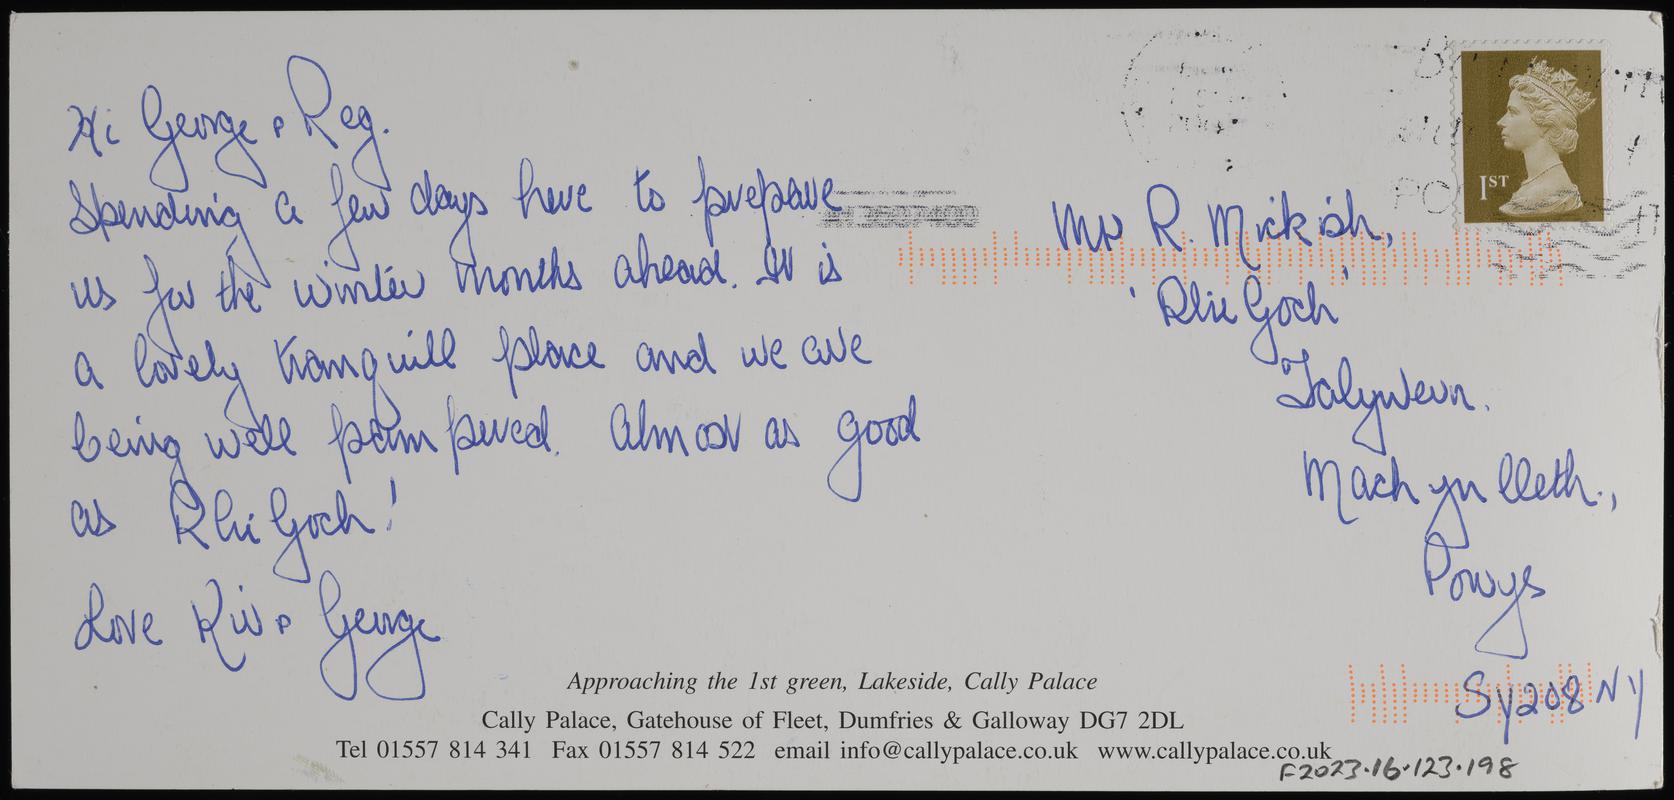 Hi George & Reg.
Spending a few days here to prepare
us for the winter months ahead. It is
a lovely tranquill place and we are
being well pampered. Almost as good
as Rhiw Goch!
Love Kiw & George
Mr R. Mickish,
'Rhiw Goch'
Talywern.
Machynlleth.,
Powys
SY208NY
1ST
Approaching the 1st green, Lakeside, Cally Palace
Cally Palace, Gatehouse of Fleet, Dumfries & Galloway DG7 2DL
Tel 01557 814 341 Fax 01557 814 522 email info@callypalace.co.uk www.callypalace.co.uk
F2023.16.123.198